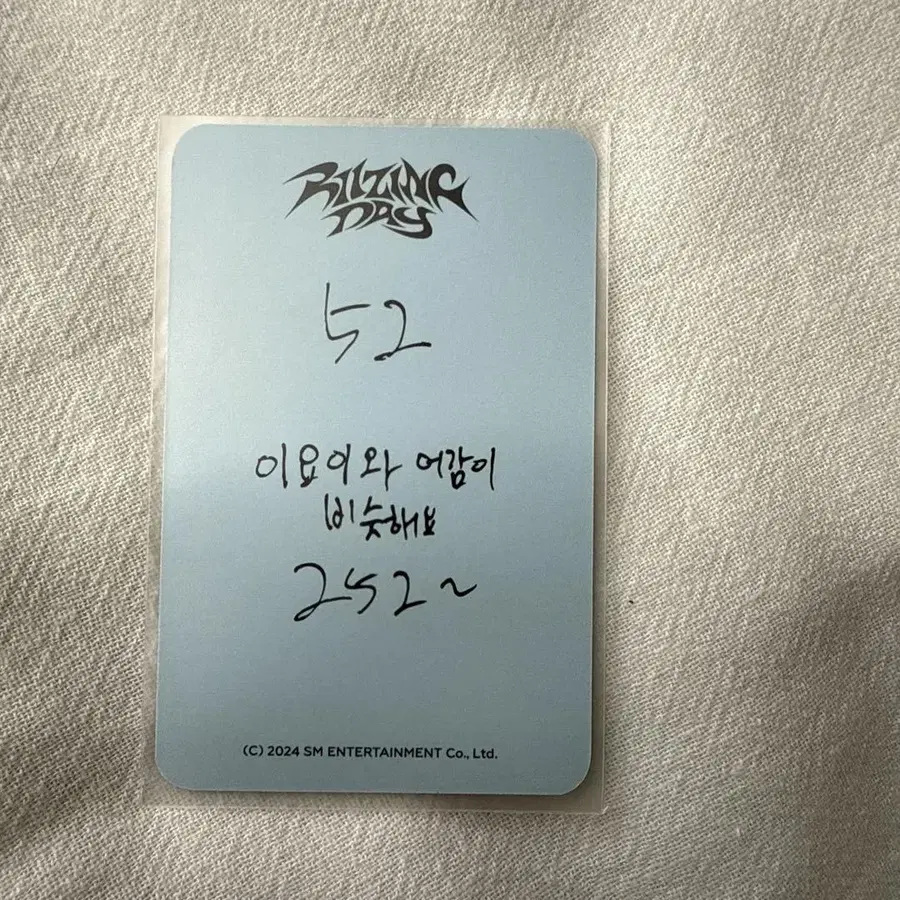 RIIZING
DAY
52
이요이와 어감이
비슷해요
252~
(C) 2024 SM ENTERTAINMENT Co., Ltd.